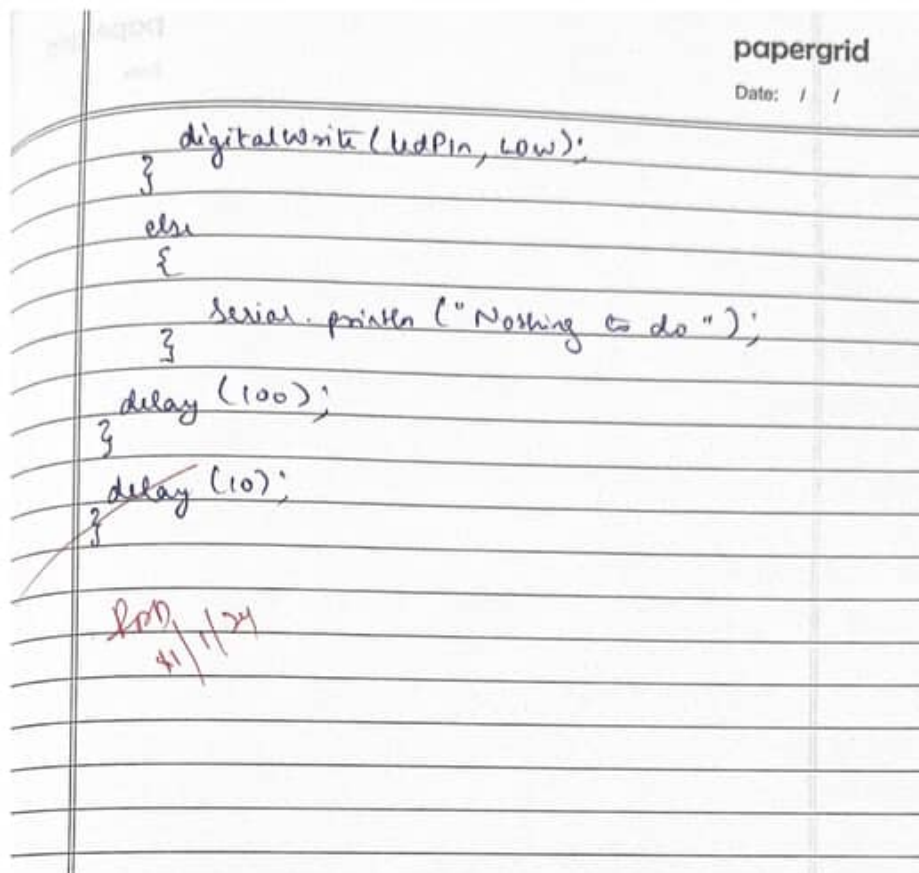 papergrid
Date: / /
digitalWrite (ledPin, LOW);
}
else
{
Serial.println ("Nothing to do");
}
delay (100);
}
delay (10);
}